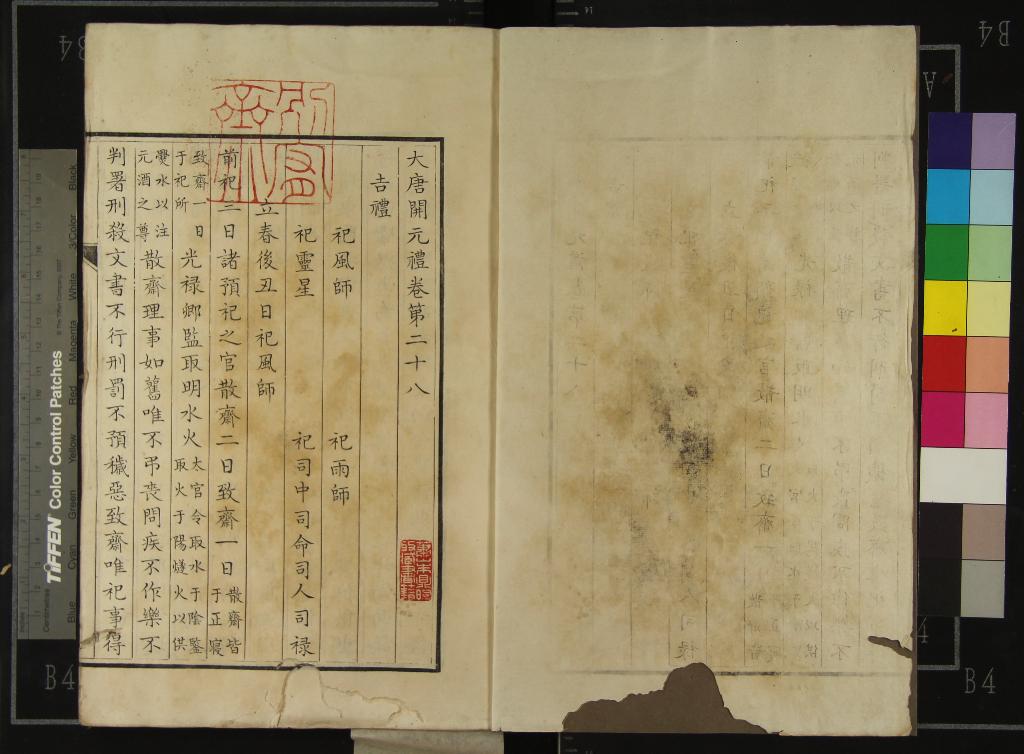 大唐開元禮卷第二十八
吉禮
祀風師 祀雨師
祀靈星 祀司中司命司人司祿
立春後丑日祀風師
前祀三日諸預祀之官散齋二日致齋一日散齋皆于正寢
致齋一日于祀所光禄卿監取明水火太官令取水于陰鑒取火于陽燧火以供
爨水以注元酒之尊散齋理事如舊唯不弔喪問疾不作樂不
判署刑殺文書不行刑罰不預穢惡致齋唯祀事得
TIFFEN Color Control Patches
Blue Cyan Green Yellow Red Magenta White 3/Color Black
B4
B4
B4
B4
A